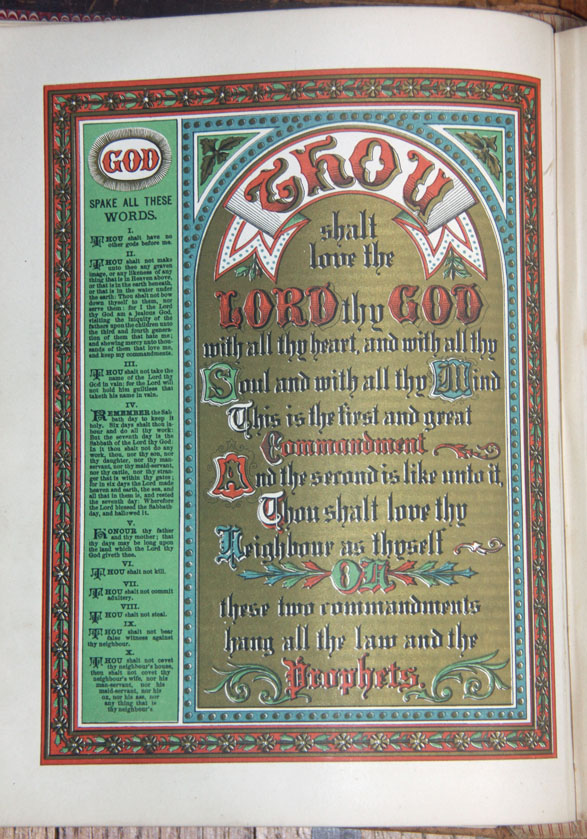 GOD
SPAKE ALL THESE
WORDS.
I.
THOU shalt have no
other gods before me.
II.
THOU shalt not make
unto thee any graven
image, or any likeness of any
thing that is in Heaven above,
or that is in the earth beneath,
or that is in the water under
the earth: Thou shalt not bow
down thyself to them, nor
serve them: for I the Lord
thy God am a jealous God,
visiting the iniquity of the
fathers upon the children unto
the third and fourth genera-
tion of them that hate me;
and shewing mercy unto thou-
sands of them that love me,
and keep my commandments.
III.
THOU shalt not take the
name of the Lord thy
God in vain; for the Lord will
not hold him guiltless that
taketh his name in vain.
IV.
REMEMBER the Sab-
bath day to keep it
holy. Six days shalt thou la-
bour and do all thy work:
But the seventh day is the
Sabbath of the Lord thy God.
In it thou shalt not do any
work, thou, nor thy son, nor
thy daughter, nor thy man-
servant, nor thy maid-servant,
nor thy cattle, nor thy stran-
ger that is within thy gates;
for in six days the Lord made
heaven and earth, the sea, and
all that in them is, and rested
the seventh day: Wherefore
the Lord blessed the Sabbath
day, and hallowed it.
V.
HONOUR thy father
and thy mother; that
thy days may be long upon
the land which the Lord thy
God giveth thee.
VI.
THOU shalt not kill.
VII.
THOU shalt not commit
adultery.
VIII.
THOU shalt not steal.
IX.
THOU shalt not bear
false witness against
thy neighbour.
X.
THOU shalt not covet
thy neighbour's house,
thou shalt not covet thy
neighbour's wife, nor his
man-servant, nor his
maid-servant, nor his
ox, nor his ass, nor
any thing that is
thy neighbour's.
Thou
shalt
love the
LORD thy GOD
with all thy heart, and with all thy
Soul and with all thy Mind
This is the first and great
Commandment
And the second is like unto it,
Thou shalt love thy
Neighbour as thyself
ON
these two commandments
hang all the law and the
Prophets.